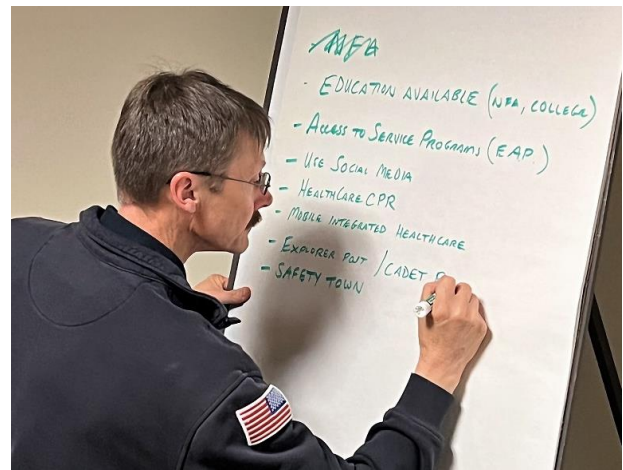 - EDUCATION AVAILABLE (NFA, COLLEGE)
- ACCESS TO SERVICE PROGRAMS (EAP.)
- USE SOCIAL MEDIA
- HEALTHCARE CPR
- MOBILE INTEGRATED HEALTHCARE
- EXPLORER POST / CADET
- SAFETY TOWN